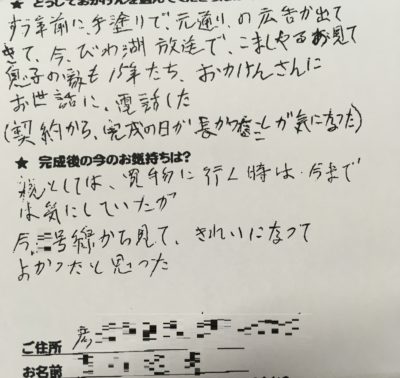 ★ どうしておかけんを選んで
すう年前に、手塗りで元通り、の広告が出て
きて、今、びわ湖放送で、こましゃるお見て
息子の家も15年たち、おかけんさんに
お世話に、電話した
(契約から、完成の日が長かつたことが気になつた)
★ 完成後の今のお気持ちは?
親としては、見物に行く時は、今まで
は気にしていたが
今、号線から見て、きれいになつて
よかつたと思つた
ご住所 彦
お名前